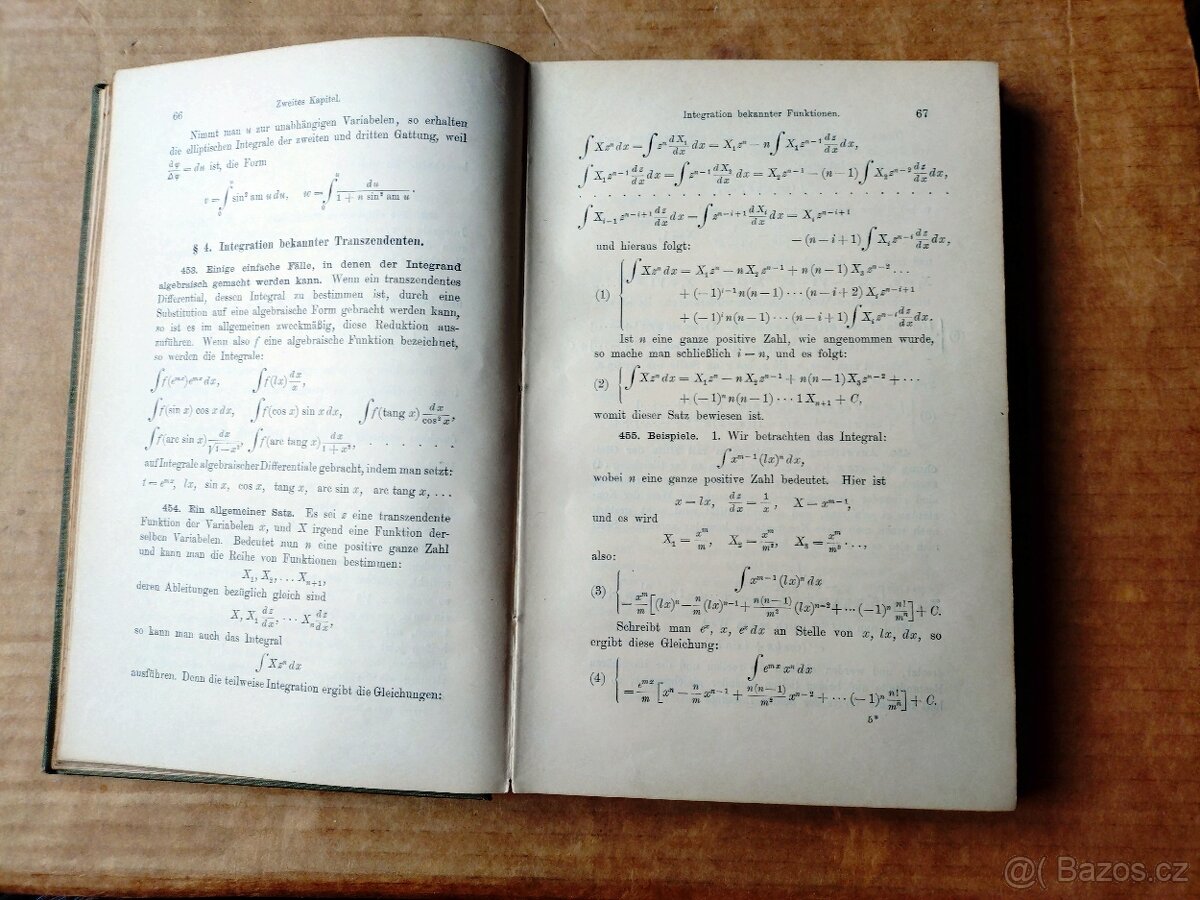 66
Zweites Kapitel.
Nimmt man u zur unabhängigen Variabelen, so erhalten
die elliptischen Integrale der zweiten und dritten Gattung, weil
dφ/Δφ = du ist, die Form
v = ∫₀ᵘ sin² am u du, w = ∫₀ᵘ du/(1 + n sin² am u).
§ 4. Integration bekannter Transzendenten.
453. Einige einfache Fälle, in denen der Integrand
algebraisch gemacht werden kann. Wenn ein transzendentes
Differential, dessen Integral zu bestimmen ist, durch eine
Substitution auf eine algebraische Form gebracht werden kann,
so ist es im allgemeinen zweckmäßig, diese Reduktion aus-
zuführen. Wenn also f eine algebraische Funktion bezeichnet,
so werden die Integrale:
∫f(eᵐˣ)eᵐˣ dx, ∫f(lx) dx/x,
∫f(sin x) cos x dx, ∫f(cos x) sin x dx, ∫f(tang x) dx/cos² x,
∫f(arc sin x) dx/√(1−x²), ∫f(arc tang x) dx/(1+x²), . . . . . .
auf Integrale algebraischer Differentiale gebracht, indem man setzt:
t = eᵐˣ, lx, sin x, cos x, tang x, arc sin x, arc tang x, ...
454. Ein allgemeiner Satz. Es sei z eine transzendente
Funktion der Variabelen x, und X irgend eine Funktion der-
selben Variabelen. Bedeutet nun n eine positive ganze Zahl
und kann man die Reihe von Funktionen bestimmen:
X₁, X₂, ... Xₙ₊₁,
deren Ableitungen bezüglich gleich sind
X, X₁ dz/dx, ··· Xₙ dz/dx,
so kann man auch das Integral
∫Xzⁿ dx
ausführen. Denn die teilweise Integration ergibt die Gleichungen:
Integration bekannter Funktionen.
67
∫Xzⁿ dx = ∫zⁿ dX₁/dx dx = X₁zⁿ − n∫X₁zⁿ⁻¹ dz/dx dx,
∫X₁zⁿ⁻¹ dz/dx dx = ∫zⁿ⁻¹ dX₂/dx dx = X₂zⁿ⁻¹ − (n−1)∫X₂zⁿ⁻² dz/dx dx,
. . . . . . . . . . . . . . . . . . . .
∫Xᵢ₋₁zⁿ⁻ⁱ⁺¹ dz/dx dx = ∫zⁿ⁻ⁱ⁺¹ dXᵢ/dx dx = Xᵢzⁿ⁻ⁱ⁺¹
− (n−i+1)∫Xᵢzⁿ⁻ⁱ dz/dx dx,
und hieraus folgt:
∫Xzⁿ dx = X₁zⁿ − nX₂zⁿ⁻¹ + n(n−1)X₃zⁿ⁻² ...
(1) + (−1)ⁱ⁻¹n(n−1) ··· (n−i+2) Xᵢzⁿ⁻ⁱ⁺¹
+ (−1)ⁱn(n−1) ··· (n−i+1)∫Xᵢzⁿ⁻ⁱ dz/dx dx.
Ist n eine ganze positive Zahl, wie angenommen wurde,
so mache man schließlich i = n, und es folgt:
(2) ∫Xzⁿ dx = X₁zⁿ − nX₂zⁿ⁻¹ + n(n−1)X₃zⁿ⁻² + ···
+ (−1)ⁿn(n−1) ··· 1 Xₙ₊₁ + C,
womit dieser Satz bewiesen ist.
455. Beispiele. 1. Wir betrachten das Integral:
∫xᵐ⁻¹(lx)ⁿ dx,
wobei n eine ganze positive Zahl bedeutet. Hier ist
z = lx, dz/dx = 1/x, X = xᵐ⁻¹,
und es wird
X₁ = xᵐ/m, X₂ = xᵐ/m², X₃ = xᵐ/m³ ...,
also:
∫xᵐ⁻¹(lx)ⁿ dx
(3) = xᵐ/m [(lx)ⁿ − n/m (lx)ⁿ⁻¹ + n(n−1)/m² (lx)ⁿ⁻² + ··· (−1)ⁿ n!/mⁿ] + C.
Schreibt man eˣ, x, eˣ dx an Stelle von x, lx, dx, so
ergibt diese Gleichung:
∫eᵐˣ xⁿ dx
(4) = eᵐˣ/m [xⁿ − n/m xⁿ⁻¹ + n(n−1)/m² xⁿ⁻² + ··· (−1)ⁿ n!/mⁿ] + C.
5*
@( Bazos.cz